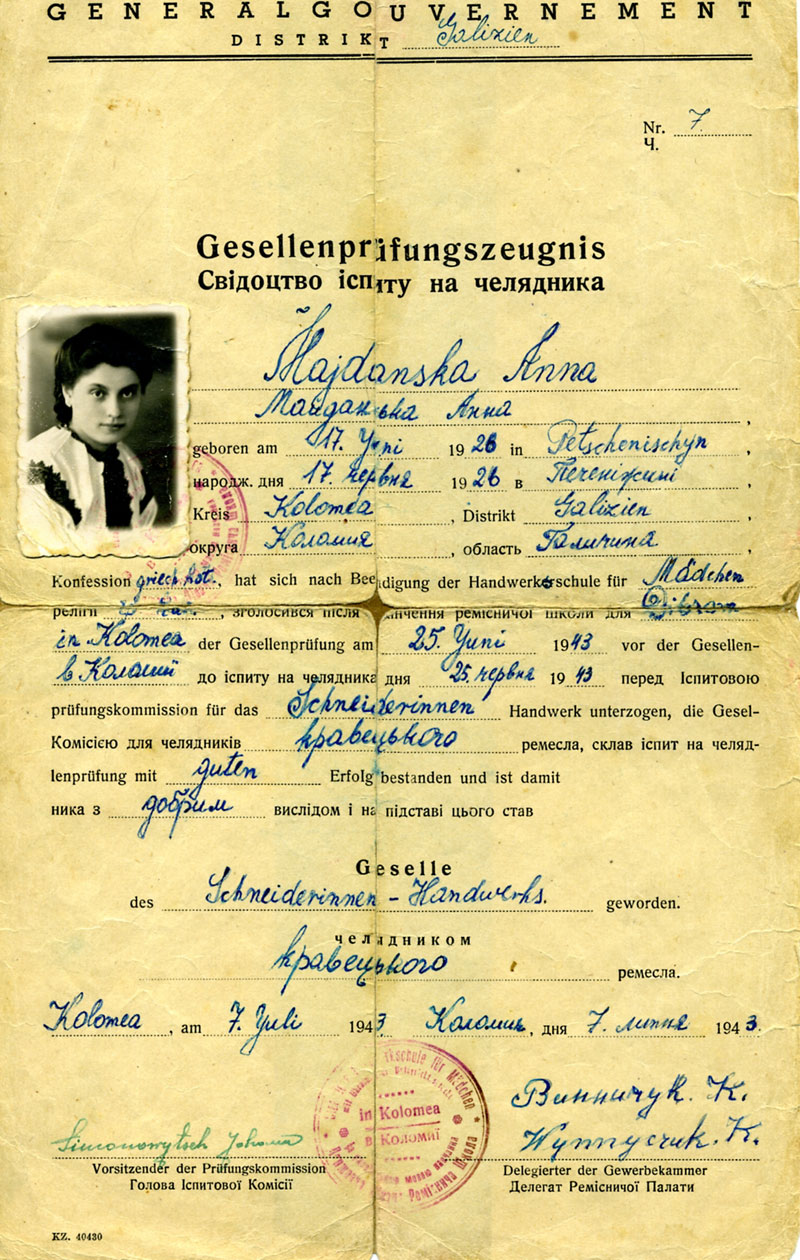 GENERALGOUVERNEMENT
DISTRIKT Galizien
Nr. 7.
Ч.
Gesellenprüfungszeugnis
Свідоцтво іспиту на челядника
Majdanska Anna
Майданська Анна,
geboren am 17. Yuni 1926 in Petschenischyn,
народж. дня 17. червня 1926 в Печеніжині,
Kreis Kolomea, Distrikt Galizien,
округа Коломия, область Галичина.,
Konfession griech. kat., hat sich nach Beendigung der Handwerkerschule für Mädchen
релігії гр. кат., зголосився після закінчення ремісничої школи для Дівчат
in Kolomea der Gesellenprüfung am 25. Yuni 1943 vor der Gesellen-
в Коломиї до іспиту на челядника дня 25. червня 1943 перед Іспитовою
prüfungskommission für das Schneiderinnen Handwerk unterzogen, die Gesel-
Комісією для челядників кравецького ремесла, склав іспит на челяд-
lenprüfung mit guten Erfolg bestanden und ist damit
ника з добрим вислідом і на підставі цього став
Geselle
des Schneiderinnen - Handwerks. geworden.
челядником
кравецького ремесла.
Kolomea, am 7. Yuli 1943 Коломия, дня 7. липня 1943.
in Kolomea
в Коломиї
Винничук. К.
Simonowytsch Wynnyczuk. K.
Vorsitzender der Prüfungskommission Delegierter der Gewerbekammer
Голова Іспитової Комісії Делегат Ремісничої Палати
KZ. 40430